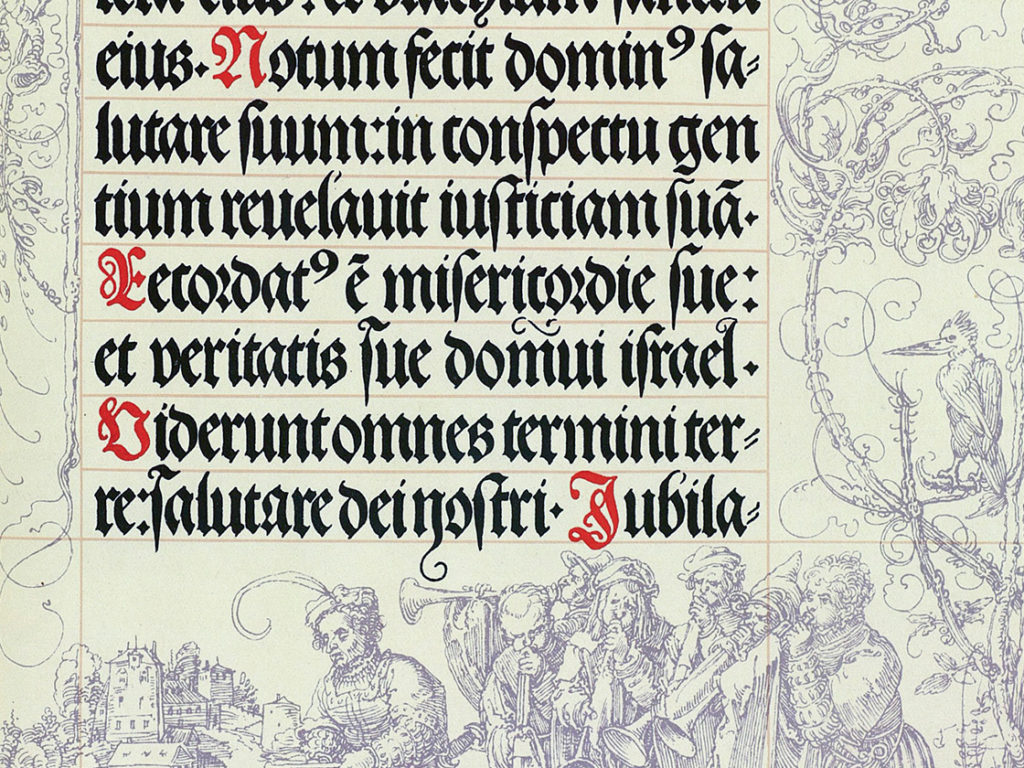 eius : et brachium
eius · Notum fecit dominꝰ sa-
lutare suum : in conspectu gen
tium reuelauit iusticiam suā ·
Recordatꝰ ē misericordie sue :
et veritatis sue domui israel ·
Viderunt omnes termini ter-
re : salutare dei nostri · Jubila-